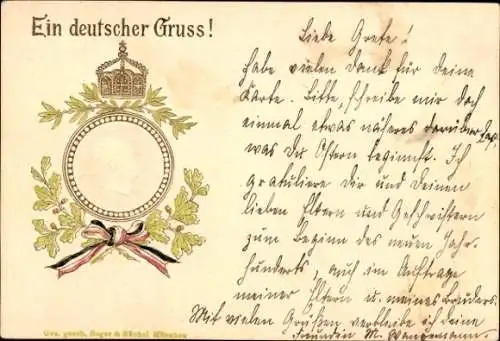 Ein deutscher Gruss!
Liebe Grete!
habe vielen Dank für deine
Karte. Bitte, schreibe mir doch
einmal etwas näheres darüber
was du Ostern beginnst. Ich
gratuliere dir und deinen
lieben Eltern und Geschwistern
zum Beginn des neuen Jahr-
hunderts, auch im Auftrage
meiner Eltern u. meines Bruders.
Mit vielen Grüßen verbleibe ich deine
Freundin M.
Ges. gesch.